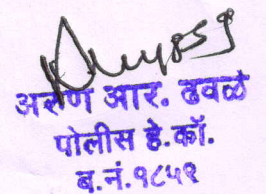 अरुण आर. ढवळे
पोलीस हे.कॉ.
ब.नं.१८५९